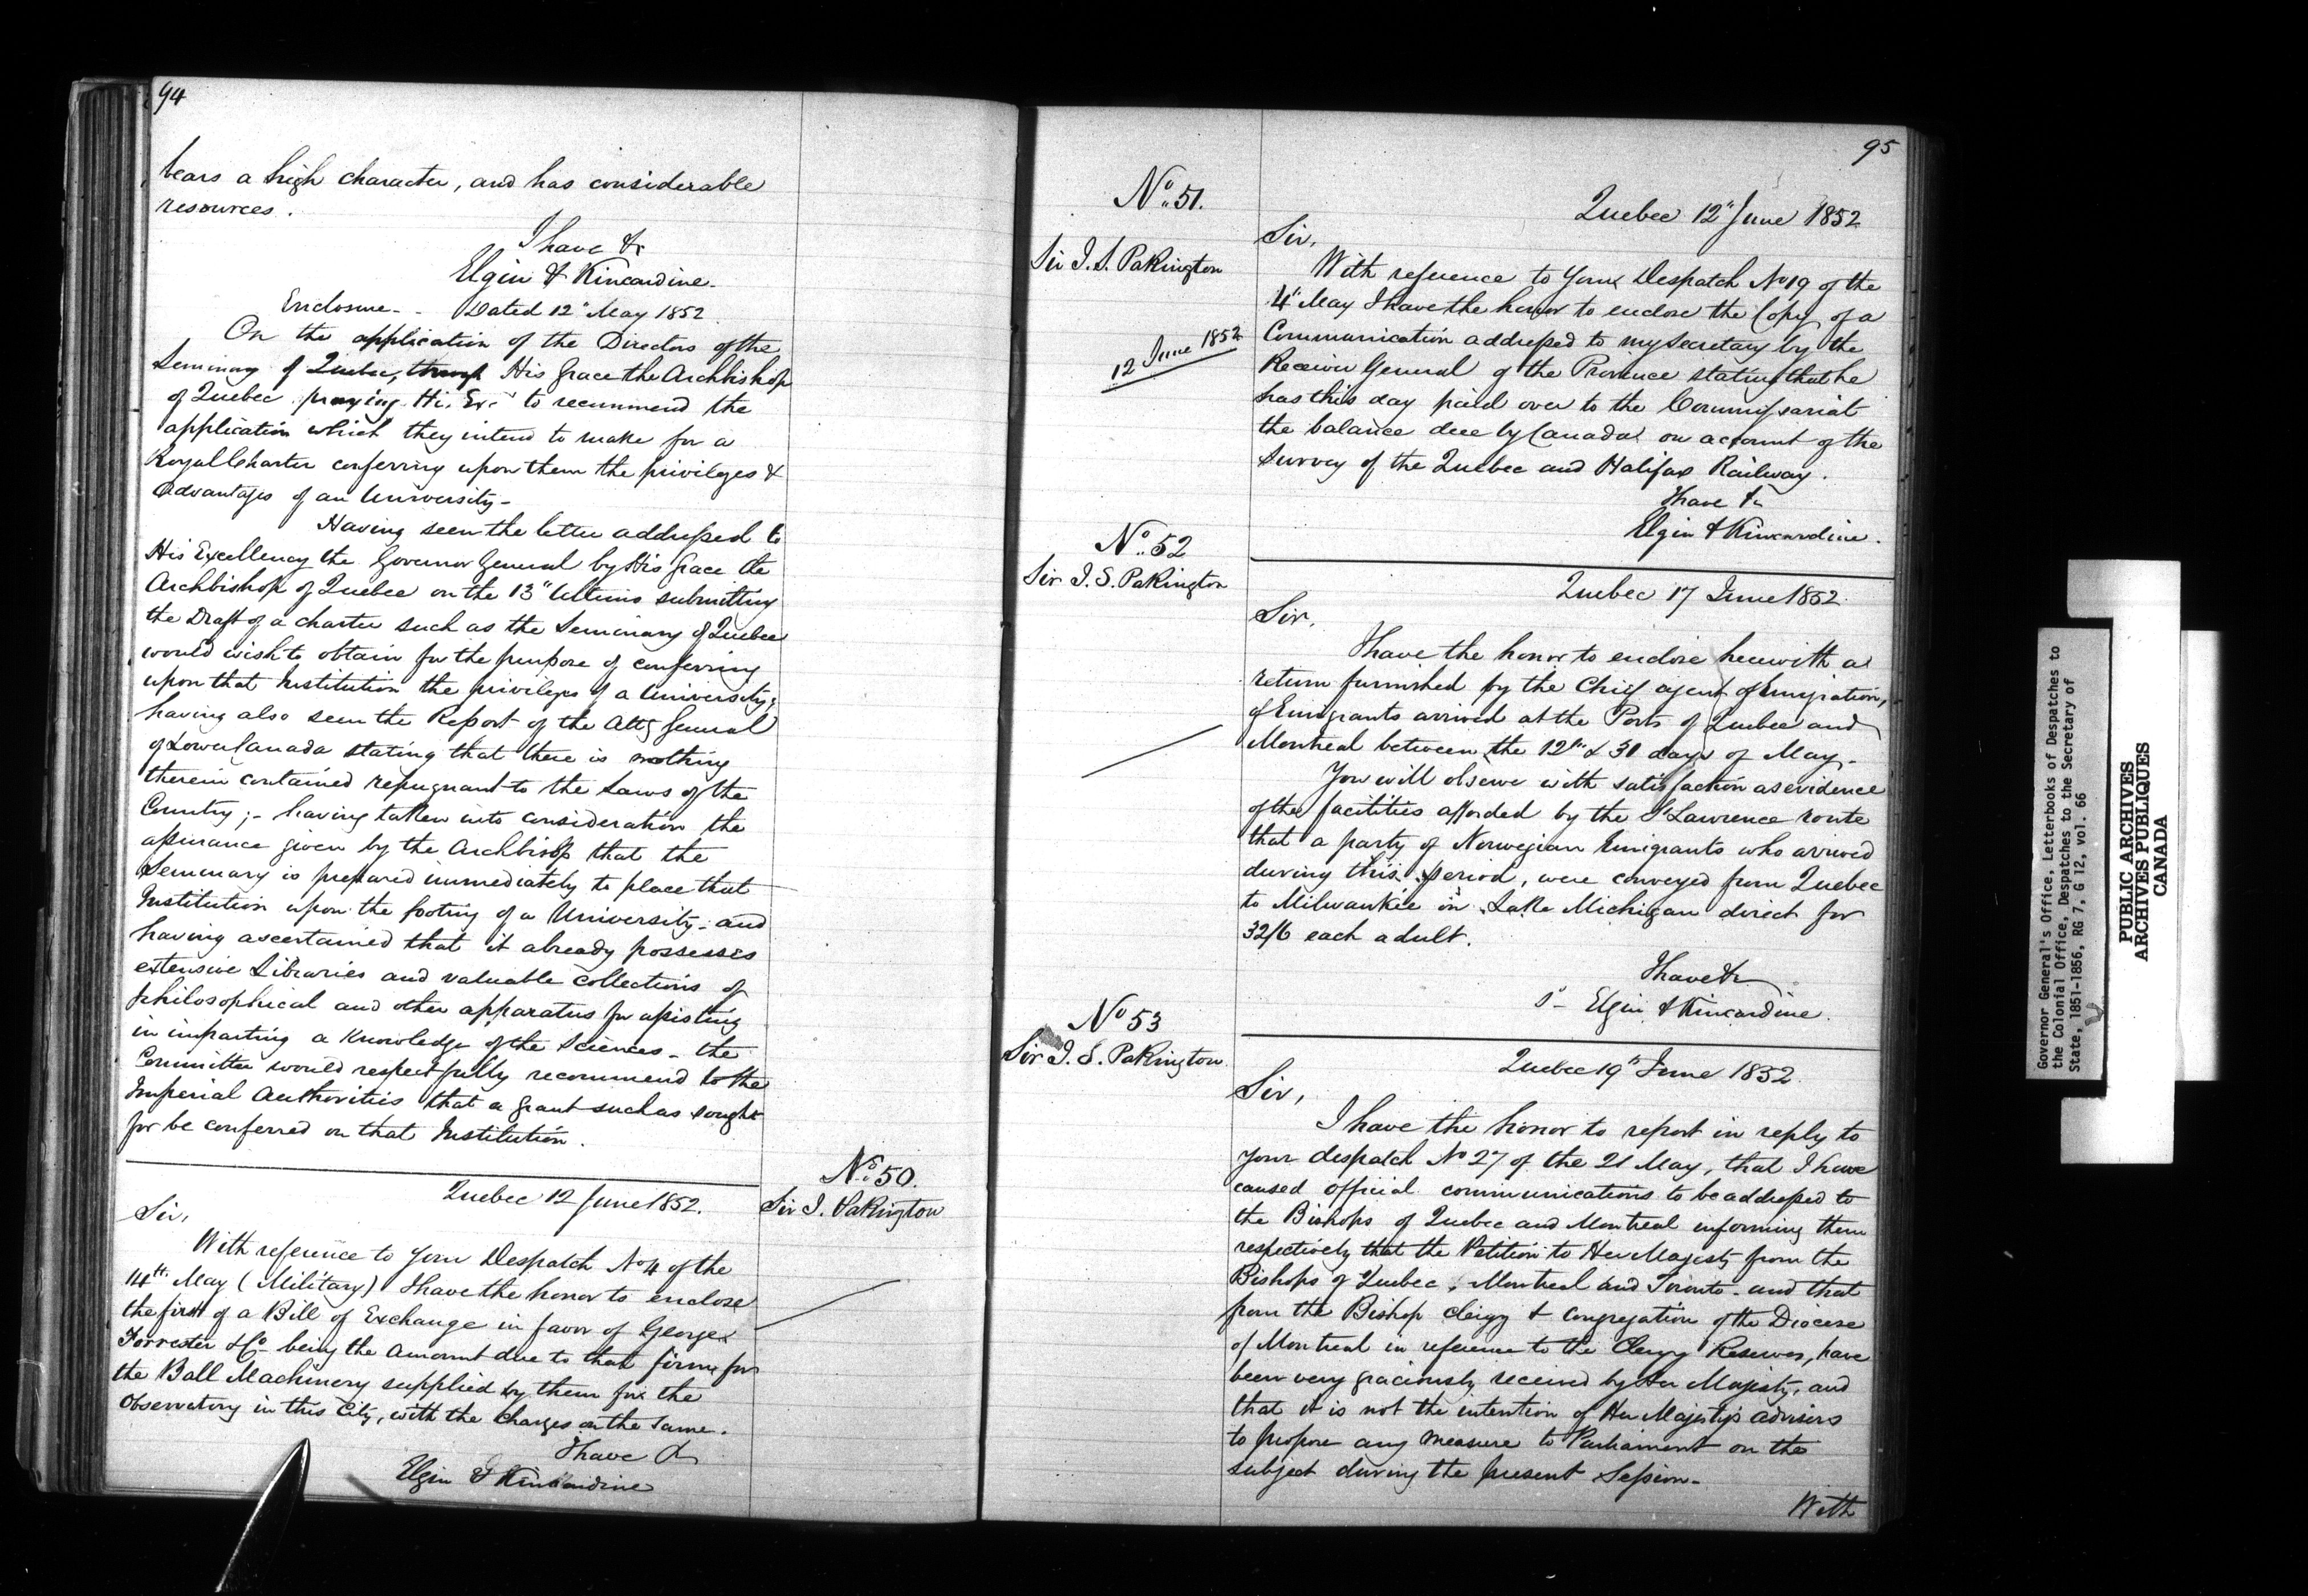 94
bears a high character, and has considerable
resources.
I have &c
Elgin & Kincardine.
Enclosure - - Dated 12" May 1852
On the application of the Directors of the
Seminary of Quebec, through His Grace the Archbishop
of Quebec praying His Excy to recommend the
application which they intend to make for a
Royal Charter conferring upon them the privileges &
advantages of an University -
Having seen the letter addressed to
His Excellency the Governor General by His Grace the
Archbishop of Quebec on the 13" Ultimo submitting
the Draft of a charter such as the Seminary of Quebec
would wish to obtain for the purpose of conferring
upon that Institution the privileges of a University;
having also seen the Report of the Atty General
of Lower Canada stating that there is nothing
therein contained repugnant to the Laws of the
Country; - having taken into consideration the
assurance given by the Archbishop that the
Seminary is prepared immediately to place that
Institution upon the footing of a University - and
having ascertained that it already possesses
extensive Libraries and valuable collections of
philosophical and other apparatus for assisting
in imparting a knowledge of the Sciences - the
Committee would respectfully recommend to the
Imperial Authorities that a grant such as sought
for be conferred on that Institution.
No. 50.
Sir J. Pakington
Quebec 12 June 1852.
Sir,
With reference to your Despatch No 4 of the
14th May (Military) I have the honor to enclose
the first of a Bill of Exchange in favor of George
Forrester & Co - being the amount due to that firm for
the Ball Machinery supplied by them for the
Observatory in this City, with the charges on the same.
I have &c
Elgin & Kincardine
95
No. 51.
Sir J. S. Pakington
12 June 1852
Quebec 12" June 1852
Sir,
With reference to your Despatch No 19 of the
4" May I have the honor to enclose the Copy of a
Communication addressed to my Secretary by the
Receiver General of the Province stating that he
has this day paid over to the Commissariat
the balance due by Canada on account of the
survey of the Quebec and Halifax Railway.
I have &c
Elgin & Kincardine.
No. 52
Sir J. S. Pakington
Quebec 17 June 1852.
Sir,
I have the honor to enclose herewith a
return furnished by the Chief agent of Emigration,
of Emigrants arrived at the Ports of Quebec and
Montreal between the 12th & 31 days of May -
You will observe with satisfaction as evidence
of the facilities afforded by the St Lawrence route
that a party of Norwegian Emigrants who arrived
during this period, were conveyed from Quebec
to Milwaukie in Lake Michigan direct for
32/6 each adult.
I have &c
Elgin & Kincardine.
No 53
Sir J. S. Pakington
Quebec 19th June 1852.
Sir,
I have the honor to report in reply to
your despatch No 27 of the 21 May, that I have
caused official communications to be addressed to
the Bishops of Quebec and Montreal informing them
respectively that the Petition to Her Majesty from the
Bishops of Quebec, Montreal and Toronto - and that
from the Bishop Clergy & Congregation of the Diocese
of Montreal in reference to the Clergy Reserves, have
been very graciously received by Her Majesty, and
that it is not the intention of Her Majesty's advisers
to propose any measure to Parliament on the
subject during the present Session -
With
Governor General's Office, Letterbooks of Despatches to
the Colonial Office, Despatches to the Secretary of
State, 1851-1856, RG 7, G 12, vol. 66
PUBLIC ARCHIVES
ARCHIVES PUBLIQUES
CANADA